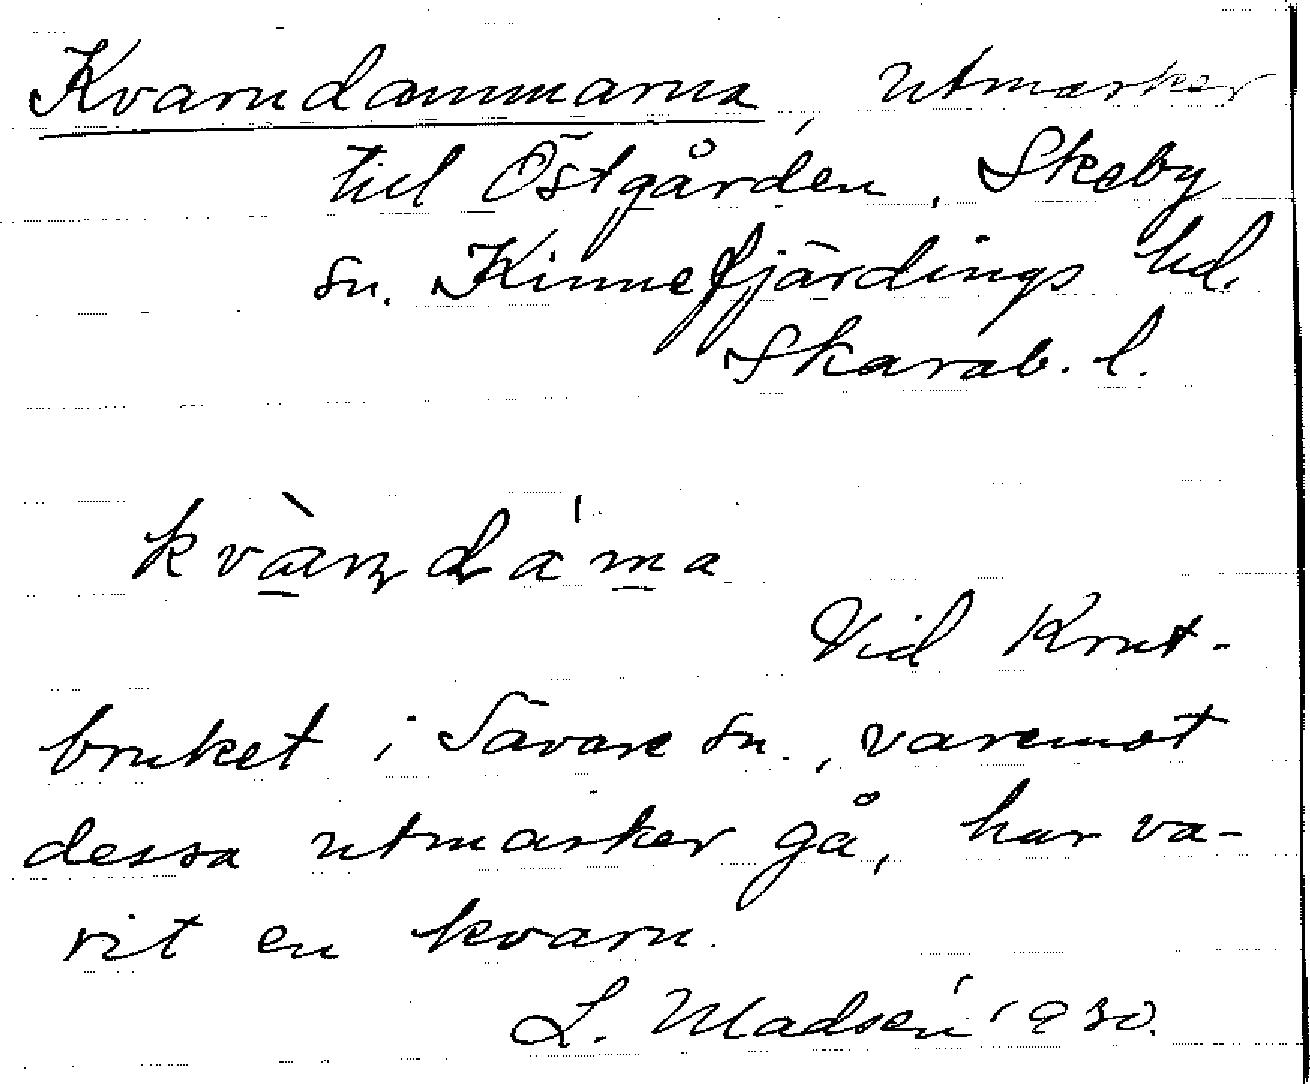 Kvarndammarna, utmarker
till Östgården, Skeby
sn. Kinnefjärdings hd.
Skarab. l.
kvàɳɖáma
Vid Krut-
bruket i Sävare sn., varemot
dessa utmarker gå, har va-
rit en kvarn.
L. Madsén 1930.